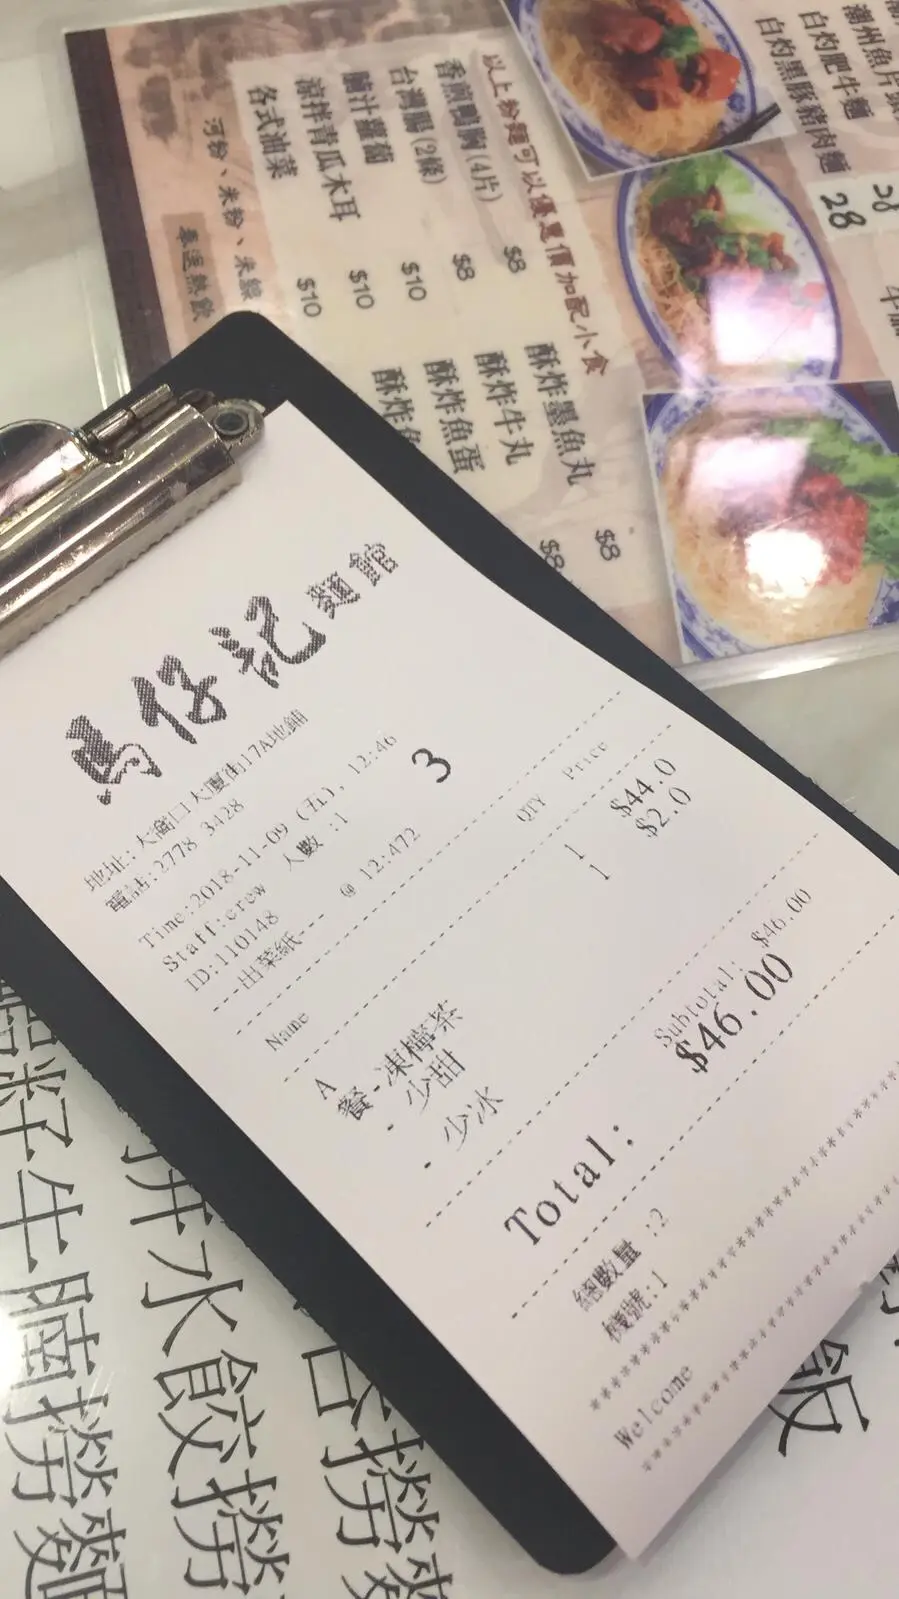 馬仔記 麵館
地址:大窩口大廈街17A地鋪
電話:2778 3428
Time:2018-11-09 (五), 12:46
Staff:crew 人數 :1 3
ID:110148
---出菜紙--- @ 12:472
Name QTY Price
A 1 $44.0
餐-凍檸茶 1 $2.0
- 少甜
- 少冰
Subtotal: $46.00
Total: $46.00
總數量 :2
機號:1
Welcome
潮州魚片
白灼肥牛麵 28
白灼黑豚豬肉麵 28
以上粉麵可以優惠價加配小食
香煎鴨胸(4片) $8
台灣腸(2條) $8
滷汁蘿蔔 $10
涼拌青瓜木耳 $10
各式油菜 $10
酥炸墨魚丸 $8
酥炸牛丸 $8
酥炸魚蛋
酥炸魚
河粉、米粉、米線
奉送熱飲
牛腩撈麵
水餃撈
撈麵
飯